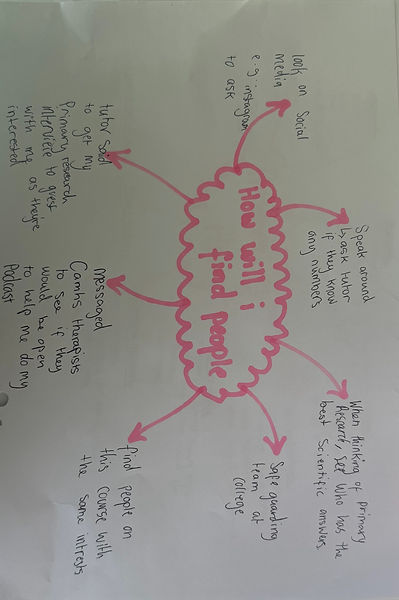 How will i
find people
look on Social
media
e.g: instagram
to ask
Speak around
↳ ask tutor
if they know
any numbers
When thinking of primary
Research see who has the
best Scientific answers
Safe guarding
team at
college
find people on
this course with
the same intrests
messaged
Camhs therapists
to see if they
would be open
to help me do my
Podcast
tutor said
to get my
Primary research
interviewe to guest
with my as they're
interested